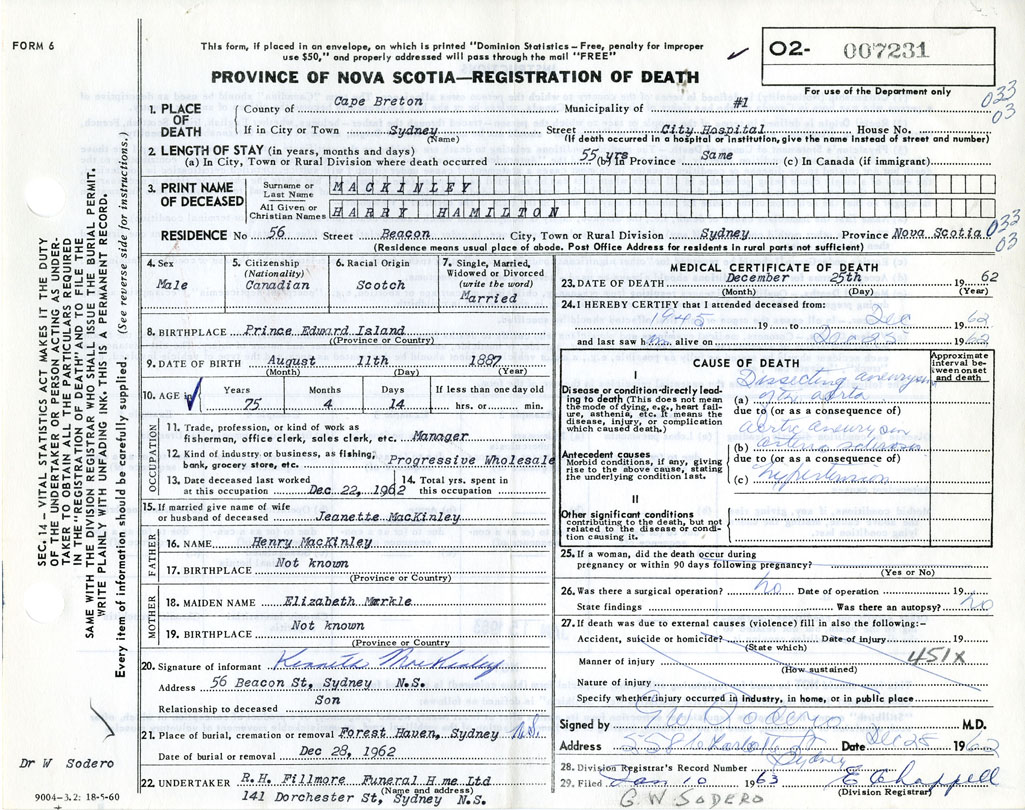 FORM 6
This form, if placed in an envelope, on which is printed "Dominion Statistics – Free, penalty for improper
use $50," and properly addressed will pass through the mail "FREE"
PROVINCE OF NOVA SCOTIA—REGISTRATION OF DEATH
O2- 007231
For use of the Department only
033
03
1. PLACE OF DEATH
County of Cape Breton Municipality of #1
If in City or Town Sydney Street City Hospital House No.
(Name) (If death occurred in a hospital or institution, give the name instead of street and number)
2. LENGTH OF STAY (in years, months and days)
(a) In City, Town or Rural Division where death occurred 55 yrs (b) In Province Same (c) In Canada (if immigrant)
3. PRINT NAME OF DECEASED
Surname or Last Name MACKINLEY
All Given or Christian Names HARRY HAMILTON
033
03
RESIDENCE No 56 Street Beacon City, Town or Rural Division Sydney Province Nova Scotia
(Residence means usual place of abode. Post Office Address for residents in rural parts not sufficient)
4. Sex
Male
5. Citizenship
(Nationality)
Canadian
6. Racial Origin
Scotch
7. Single, Married,
Widowed or Divorced
(write the word)
Married
8. BIRTHPLACE Prince Edward Island
(Province or Country)
9. DATE OF BIRTH August 11th 1887
(Month) (Day) (Year)
10. AGE in Years Months Days If less than one day old
75 4 14 hrs. or min.
OCCUPATION
11. Trade, profession, or kind of work as
fisherman, office clerk, sales clerk, etc. Manager
12. Kind of industry or business, as fishing,
bank, grocery store, etc. Progressive Wholesale
13. Date deceased last worked
at this occupation Dec 22, 1962
14. Total yrs. spent in
this occupation
15. If married give name of wife
or husband of deceased Jeanette MacKinley
FATHER
16. NAME Henry MacKinley
17. BIRTHPLACE Not known
(Province or Country)
MOTHER
18. MAIDEN NAME Elizabeth Markle
19. BIRTHPLACE Not known
(Province or Country)
20. Signature of informant Kenneth MacKinley
Address 56 Beacon St, Sydney N.S.
Relationship to deceased Son
21. Place of burial, cremation or removal Forest Haven, Sydney N.S.
Date of burial or removal Dec 28, 1962
22. UNDERTAKER R.H. Fillmore Funeral H me Ltd
(Name and address)
141 Dorchester St, Sydney N.S.
MEDICAL CERTIFICATE OF DEATH
23. DATE OF DEATH December 25th 1962
(Month) (Day) (Year)
24. I HEREBY CERTIFY that I attended deceased from:
1945 19 to Dec 1962
and last saw him alive on Dec 25 1962
CAUSE OF DEATH
Approximate interval between onset and death
I
Disease or condition directly leading to death (This does not mean the mode of dying, e.g., heart failure, asthenia, etc. It means the disease, injury, or complication which caused death.)
(a) Dissecting aneurysm of the aorta
due to (or as a consequence of)
aortic aneurysm
Antecedent causes
Morbid conditions, if any, giving rise to the above cause, stating the underlying condition last.
(b)
due to (or as a consequence of)
(c) hypertension
II
Other significant conditions
contributing to the death, but not related to the disease or condition causing it.
25. If a woman, did the death occur during
pregnancy or within 90 days following pregnancy?
(Yes or No)
26. Was there a surgical operation? no Date of operation 19
State findings Was there an autopsy? no
27. If death was due to external causes (violence) fill in also the following:-
Accident, suicide or homicide? Date of injury 19
(State which)
Manner of injury 451X
(How sustained)
Nature of injury
Specify whether injury occurred in industry, in home, or in public place
Signed by G W Sodero M.D.
Address 558 Charlotte St Date Dec 28 1962
Sydney
28. Division Registrar's Record Number
29. Filed Jan 10 1963 E Chappell
(Division Registrar)
G.W SODERO
SEC. 14 – VITAL STATISTICS ACT MAKES IT THE DUTY
OF THE UNDERTAKER OR PERSON ACTING AS UNDER-
TAKER TO OBTAIN ALL THE PARTICULARS REQUIRED
IN THE "REGISTRATION OF DEATH" AND TO FILE THE
SAME WITH THE DIVISION REGISTRAR WHO SHALL ISSUE THE BURIAL PERMIT.
WRITE PLAINLY WITH UNFADING INK. THIS IS A PERMANENT RECORD.
Every item of information should be carefully supplied. (See reverse side for instructions.)
Dr W Sodero
9004–3.2: 18-5-60